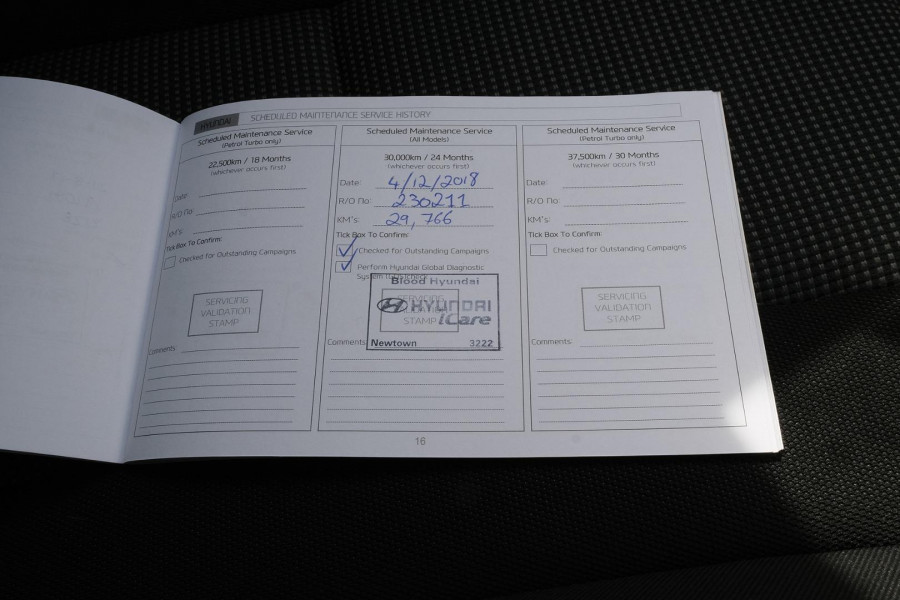 HYUNDAI SCHEDULED MAINTENANCE SERVICE HISTORY
Scheduled Maintenance Service
(Petrol Turbo only)
22,500km / 18 Months
(whichever occurs first)
Date:
R/O No:
KM's:
Tick Box To Confirm:
Checked for Outstanding Campaigns
SERVICING
VALIDATION
STAMP
Comments:
Scheduled Maintenance Service
(All Models)
30,000km / 24 Months
(whichever occurs first)
Date: 4/12/2018
R/O No: 230211
KM's: 29,766
Tick Box To Confirm:
Checked for Outstanding Campaigns
Perform Hyundai Global Diagnostic
System
Blood Hyundai
SERVICING
VALIDATION
STAMP
HYUNDAI
iCare
Newtown 3222
Comments:
Scheduled Maintenance Service
(Petrol Turbo only)
37,500km / 30 Months
(whichever occurs first)
Date:
R/O No:
KM's:
Tick Box To Confirm:
Checked for Outstanding Campaigns
SERVICING
VALIDATION
STAMP
Comments:
16